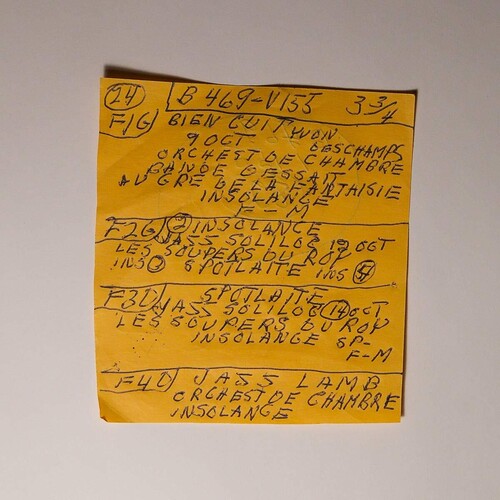 24 B 469-V155 3 3/4
F1G BIEN CUIT WON
9 OCT DESCHAMPS
ORCHEST DE CHAMBRE
BANDE DESSAIT
AU GRE DE LA FANTAISIE
INSOLANGE
F-M
F2G 2 INSOLANCE
JASS SOLILOG 19 OCT
LES SOUPERS DU ROY
INS SPOTLAITE INS
F3D SPOTLAITE
JASS SOLILOG 14 OCT
LES SOUPERS DU ROY
INSOLANGE SP-
F-M
F4D JASS LAMB
ORCHEST DE CHAMBRE
INSOLANGE